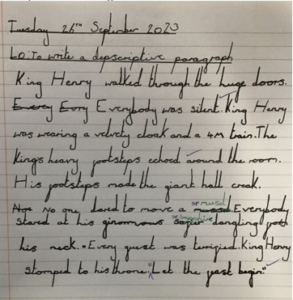 Tuesday 26th September 2023
LO: To write a depscriptive paragraph
King Henry walked through the huge doors.
Everey Evory Everybody was silent. King Henry
was wearing a velvety cloak and a 4M train. The
King's heavy footsteps echoed around the room.
His footsteps made the giant hall creak.
Not No one dared to move a mussel muscle Everybody
stared at his ginormous dangling
his neck. Every guest was terrified. King Henry
stomped to his throne, "Let the feast begin."